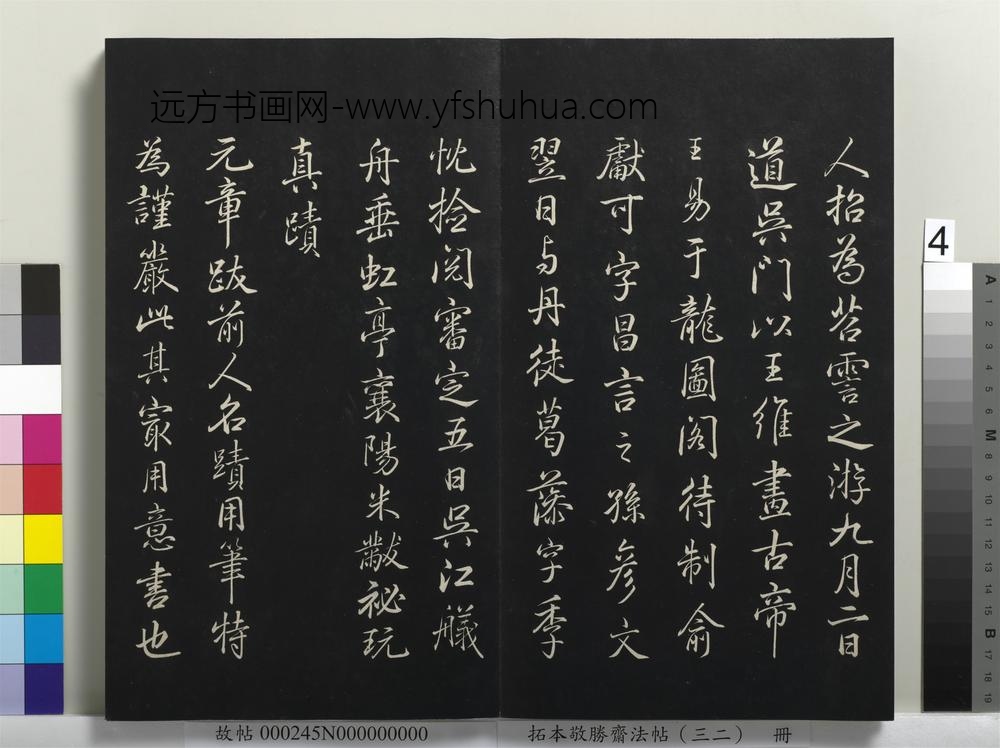 人招為苕霅之游九月二日
道吳門以王維畫古帝
王易于龍圖閣待制俞
獻可字昌言之孫彥文
翌日与丹徒葛藻字季
忱撿閱審定五日吳江艤
舟垂虹亭襄陽米黻祕玩
真蹟
元章跋前人名蹟用筆特
為謹嚴此其㝡用意書也
远方书画网-www.yfshuhua.com
故帖 000245N000000000
拓本敬勝齋法帖（三二） 冊
4
A 1 2 3 4 5 6 M 8 9 10 11 12 13 14 15 B 17 18 19